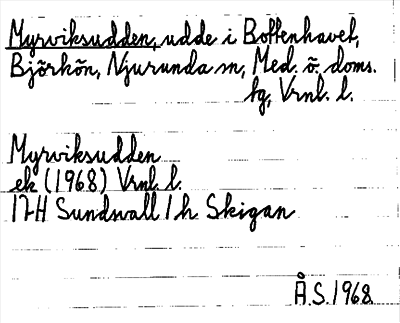 Myrviksudden, udde i Bottenhavet,
Björkön, Njurunda sn, Med. ö. doms.
tg, Vrnl. l.
Myrviksudden
ek (1968) Vrnl. l.
17H Sundsvall 1h Skigan
Å.S. 1968